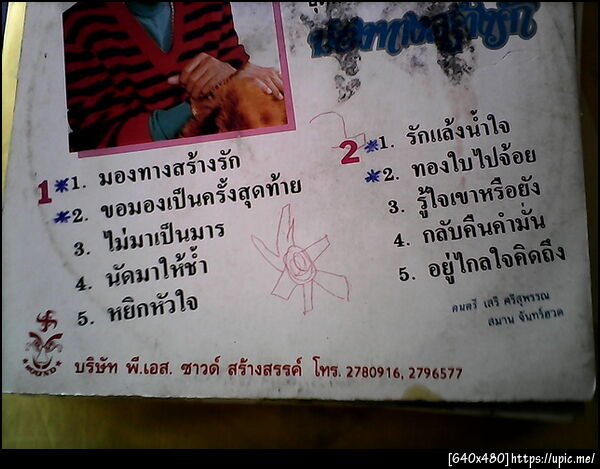 มองทางสร้างรัก
1
*1. มองทางสร้างรัก
*2. ขอมองเป็นครั้งสุดท้าย
3. ไม่มาเป็นมาร
4. นัดมาให้ช้ำ
5. หยิกหัวใจ
2
*1. รักแล้งน้ำใจ
*2. ทองใบไปจ้อย
3. รู้ใจเขาหรือยัง
4. กลับคืนคำมั่น
5. อยู่ไกลใจคิดถึง
ดนตรี เสรี ศรีสุพรรณ
สมาน จันทร์ฮวด
SOUND
บริษัท พี.เอส. ซาวด์ สร้างสรรค์ โทร. 2780916, 2796577
[640x480]https://upic.me/